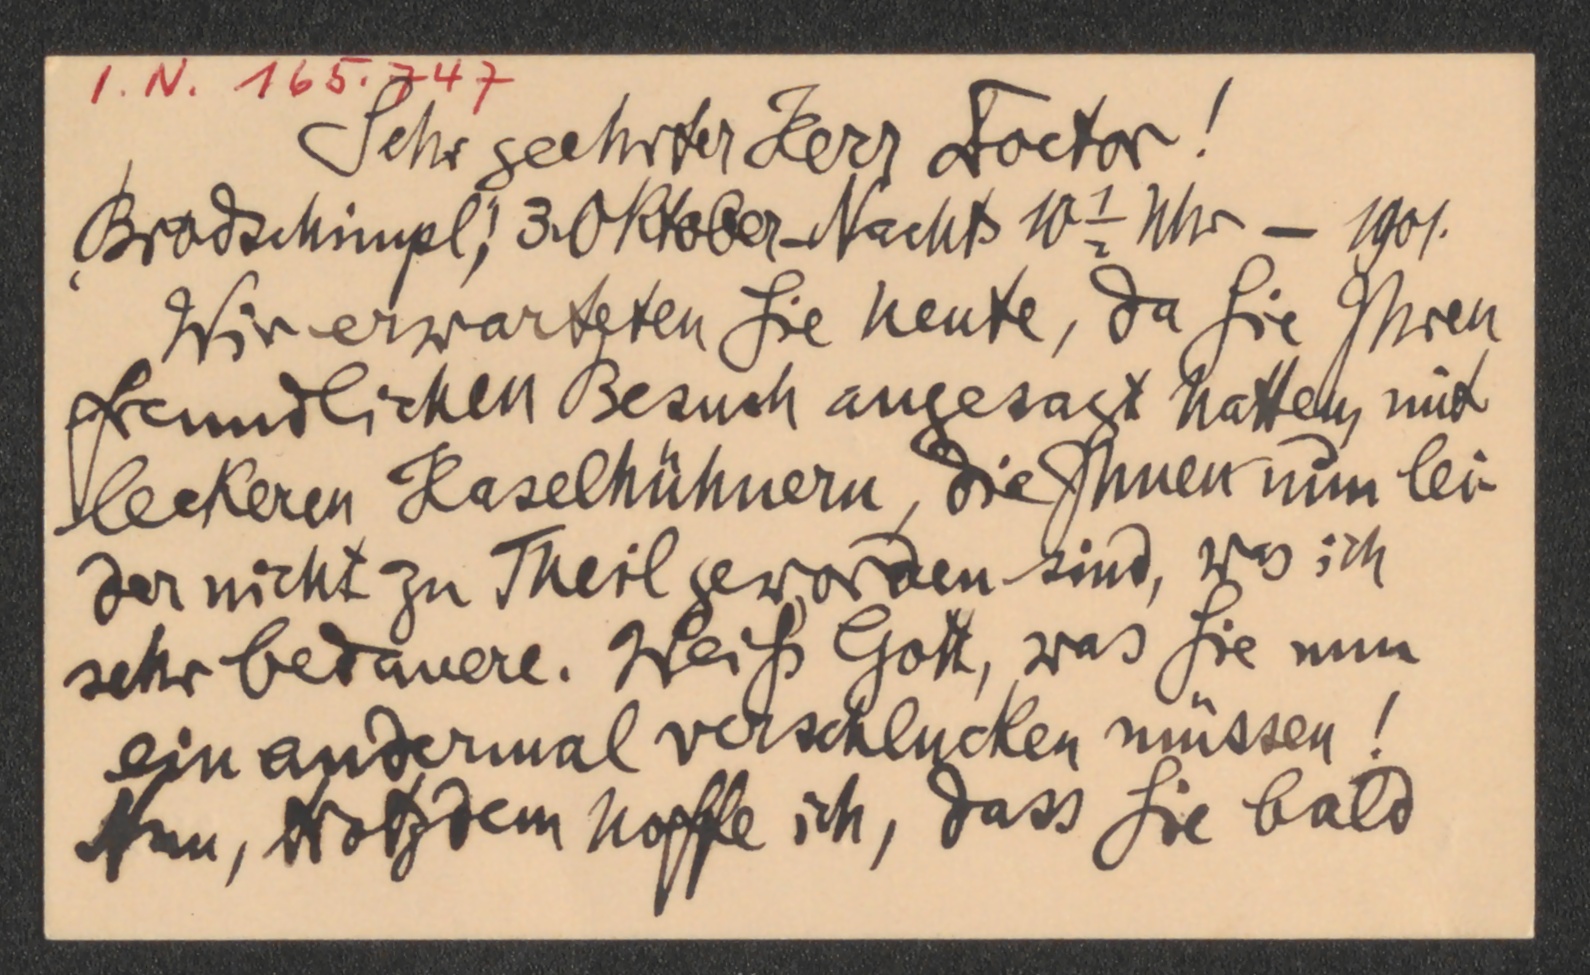 I.N. 165.747
Sehr geehrter Herr Doctor!
Brodschimpl, 3. Oktober – Nachts 10 1/2 Uhr – 1901.
Wir erwarteten Sie heute, da Sie Ihren
freundlichen Besuch angesagt hatten, mit
leckeren Haselhühnern, die Ihnen nun lei-
der nicht zu Theil geworden sind, was ich
sehr bedauere. Weiß Gott, was Sie nun
ein andermal verschlucken müssen!
Nun, trotzdem hoffe ich, dass Sie bald